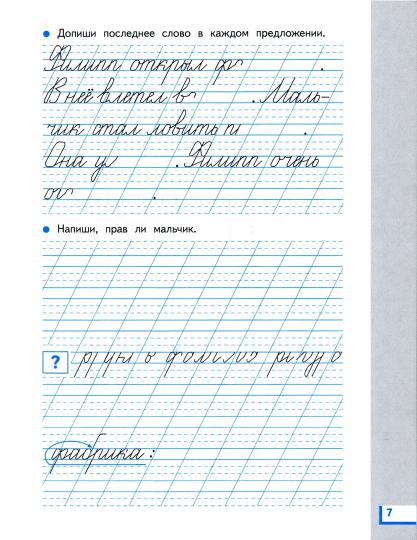 Допиши последнее слово в каждом предложении.
Филипп открыл ф .
В неё влетел в . Маль-
чик стал ловить пі .
Она ул . Филипп очень
ог .
Напиши, прав ли мальчик.
?
фабрика :
7